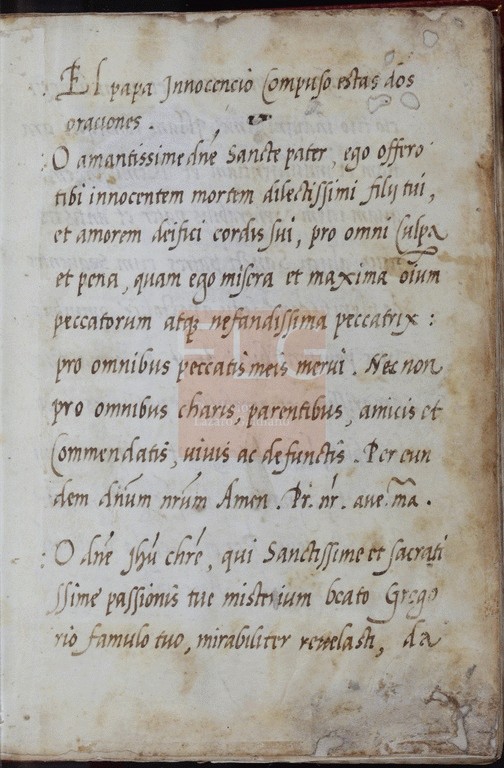 : El papa Innocencio Compuso estas dos
oraciones.
: O amantissime dne Sancte pater, ego offero
tibi innocentem mortem dilectissimi filij tui,
et amorem deifici cordis sui, pro omni Culpa
et pena, quam ego misera et maxima oium
peccatorum atq; nefandissima peccatrix :
pro omnibus peccatis meis merui. Nec non
pro omnibus charis, parentibus, amicis et
Commendatis, vivis ac defunctis. Per eun
dem dnum nrum Amen. Pr. nr. ave ma.
: O dne Jhu chre, qui Sanctissime et sacrati
ssime passionis tue misterium beato Grego
rio famulo tuo, mirabiliter revelasti, da